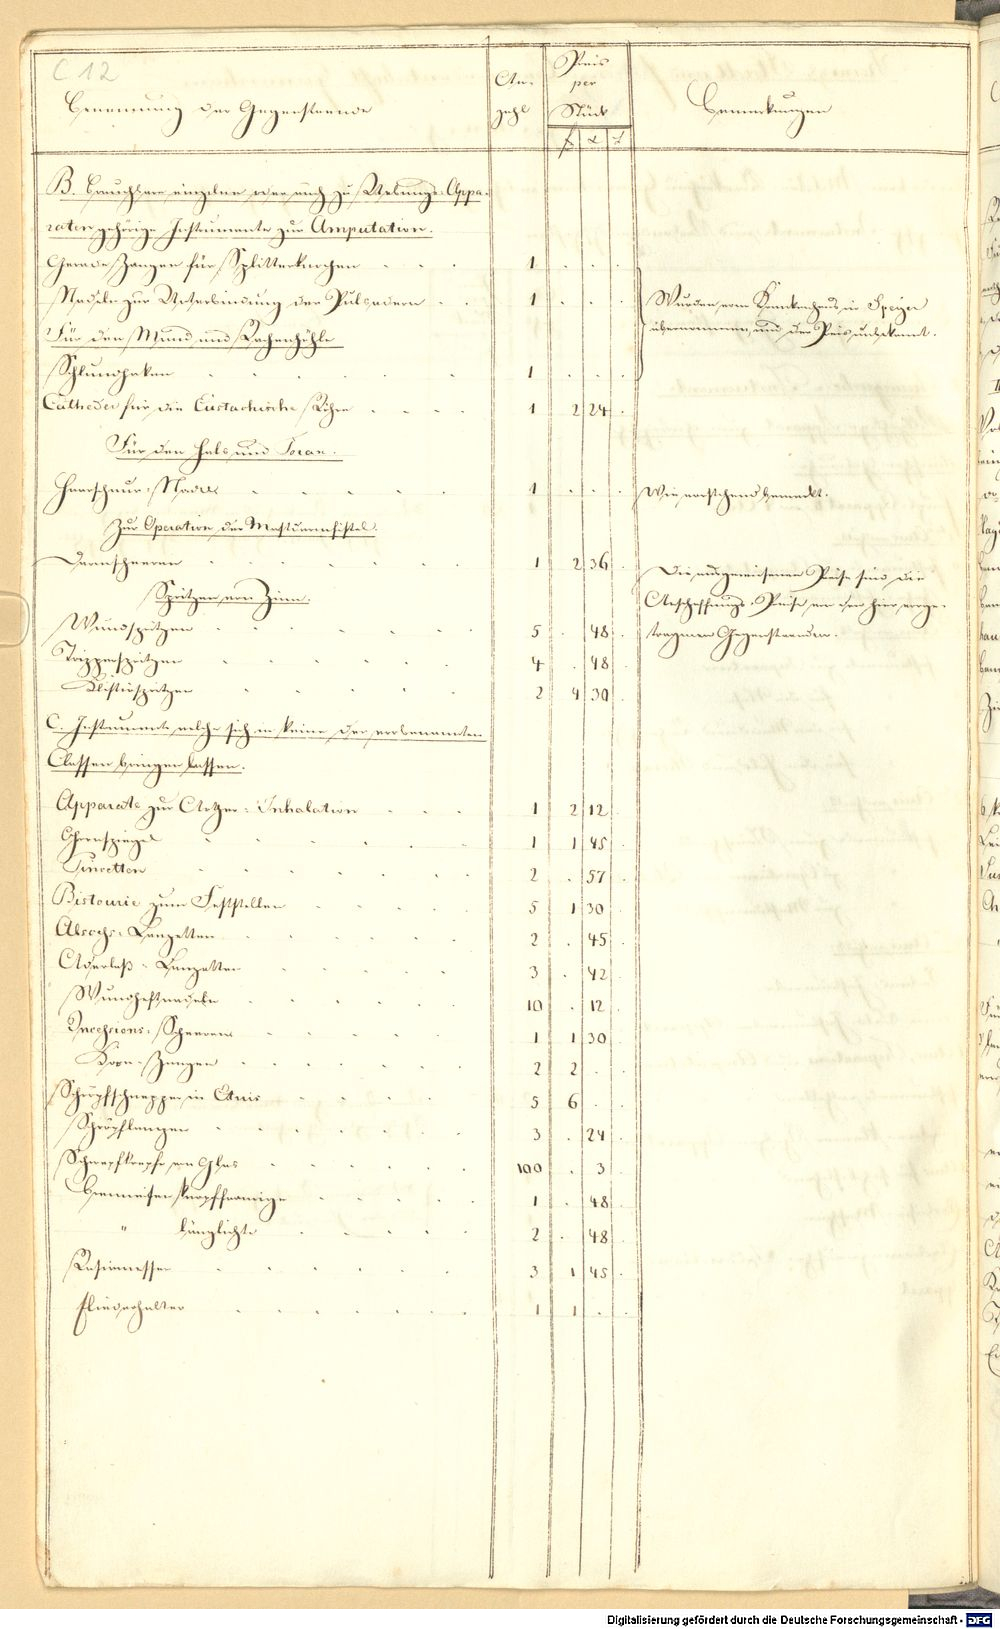 C 12
Benennung der Gegenstaende
An-
zahl
Preis
per
Stück
f x
Bemerkungen
B. Brauchbare einzelne oder auch zu Uebungs-Appa-
raten gehörige Instrumente zur Amputation.
Gerade Zangen für Splitterknochen . . . 1 . . .
Nadeln zur Unterbindung der Pulsadern . . 1 . . .
Wurden vom Krankenhaus in Speyer
übernommen, und der Preis unbekannt.
Für den Mund und Rachenhöhle
Schlundhaken . . . . . . 1 . . .
Catheder für die Eustachische Röhre . . . . 1 2 24 .
Für den Hals und Toran.
Haarschnur-Nadel . . . . . 1 . . .
Wie vorstehend bemerkt.
Zur Operation der Mastdarmfistel.
Darmscheeren . . . . . . 1 2 36 .
Die ausgewiesenen Preise sind die
Anschaffungs-Preise von den hier vorge-
tragenen Gegenstaenden.
Spritzen von Zinn.
Wundspritzen . . . . . 5 . 48 .
Tripperspritzen . . . . . 4 . 48 .
Klistirspritzen . . . . . 2 4 30 .
C. Instrumente welche sich in keine der vorbenannten
Classen bringen lassen.
Apparate zur Aether-Inhalation . . . 1 2 12 .
Ohrenspiegel . . . . . 1 1 45 .
Pincetten . . . . . . 2 . 57 .
Bistourie zum Feststellen . . . . 5 1 30 .
Abscess-Lanzetten . . . . . 2 . 45
Aderlaß-Lanzetten . . . . 3 . 42
Wundheftnadeln . . . . . 10 . 12
Incisions-Scheeren . . . . . 1 1 30
Korn-Zangen . . . . . . 2 2 . .
Schröpfschnepper in Etuis . . . . 5 6 . .
Schröpflampen . . . . . . 3 . 24 .
Schroepfkoepfe von Glas . . . . . 100 . 3 .
Brenneisen knopfförmige . . . . 1 . 48 .
" länglichte . . . . 2 . 48 .
Rasirmesser . . . . . . 3 1 45 .
Fliederhalter . . . . . . 1 1 . .
Digitalisierung gefördert durch die Deutsche Forschungsgemeinschaft - DFG